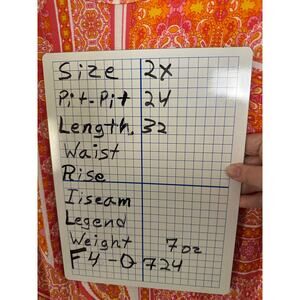 Size 2X
Pit-Pit 24
Length. 32
Waist
Rise
Iiseam
Legend
Weight 7oz
F4-0724